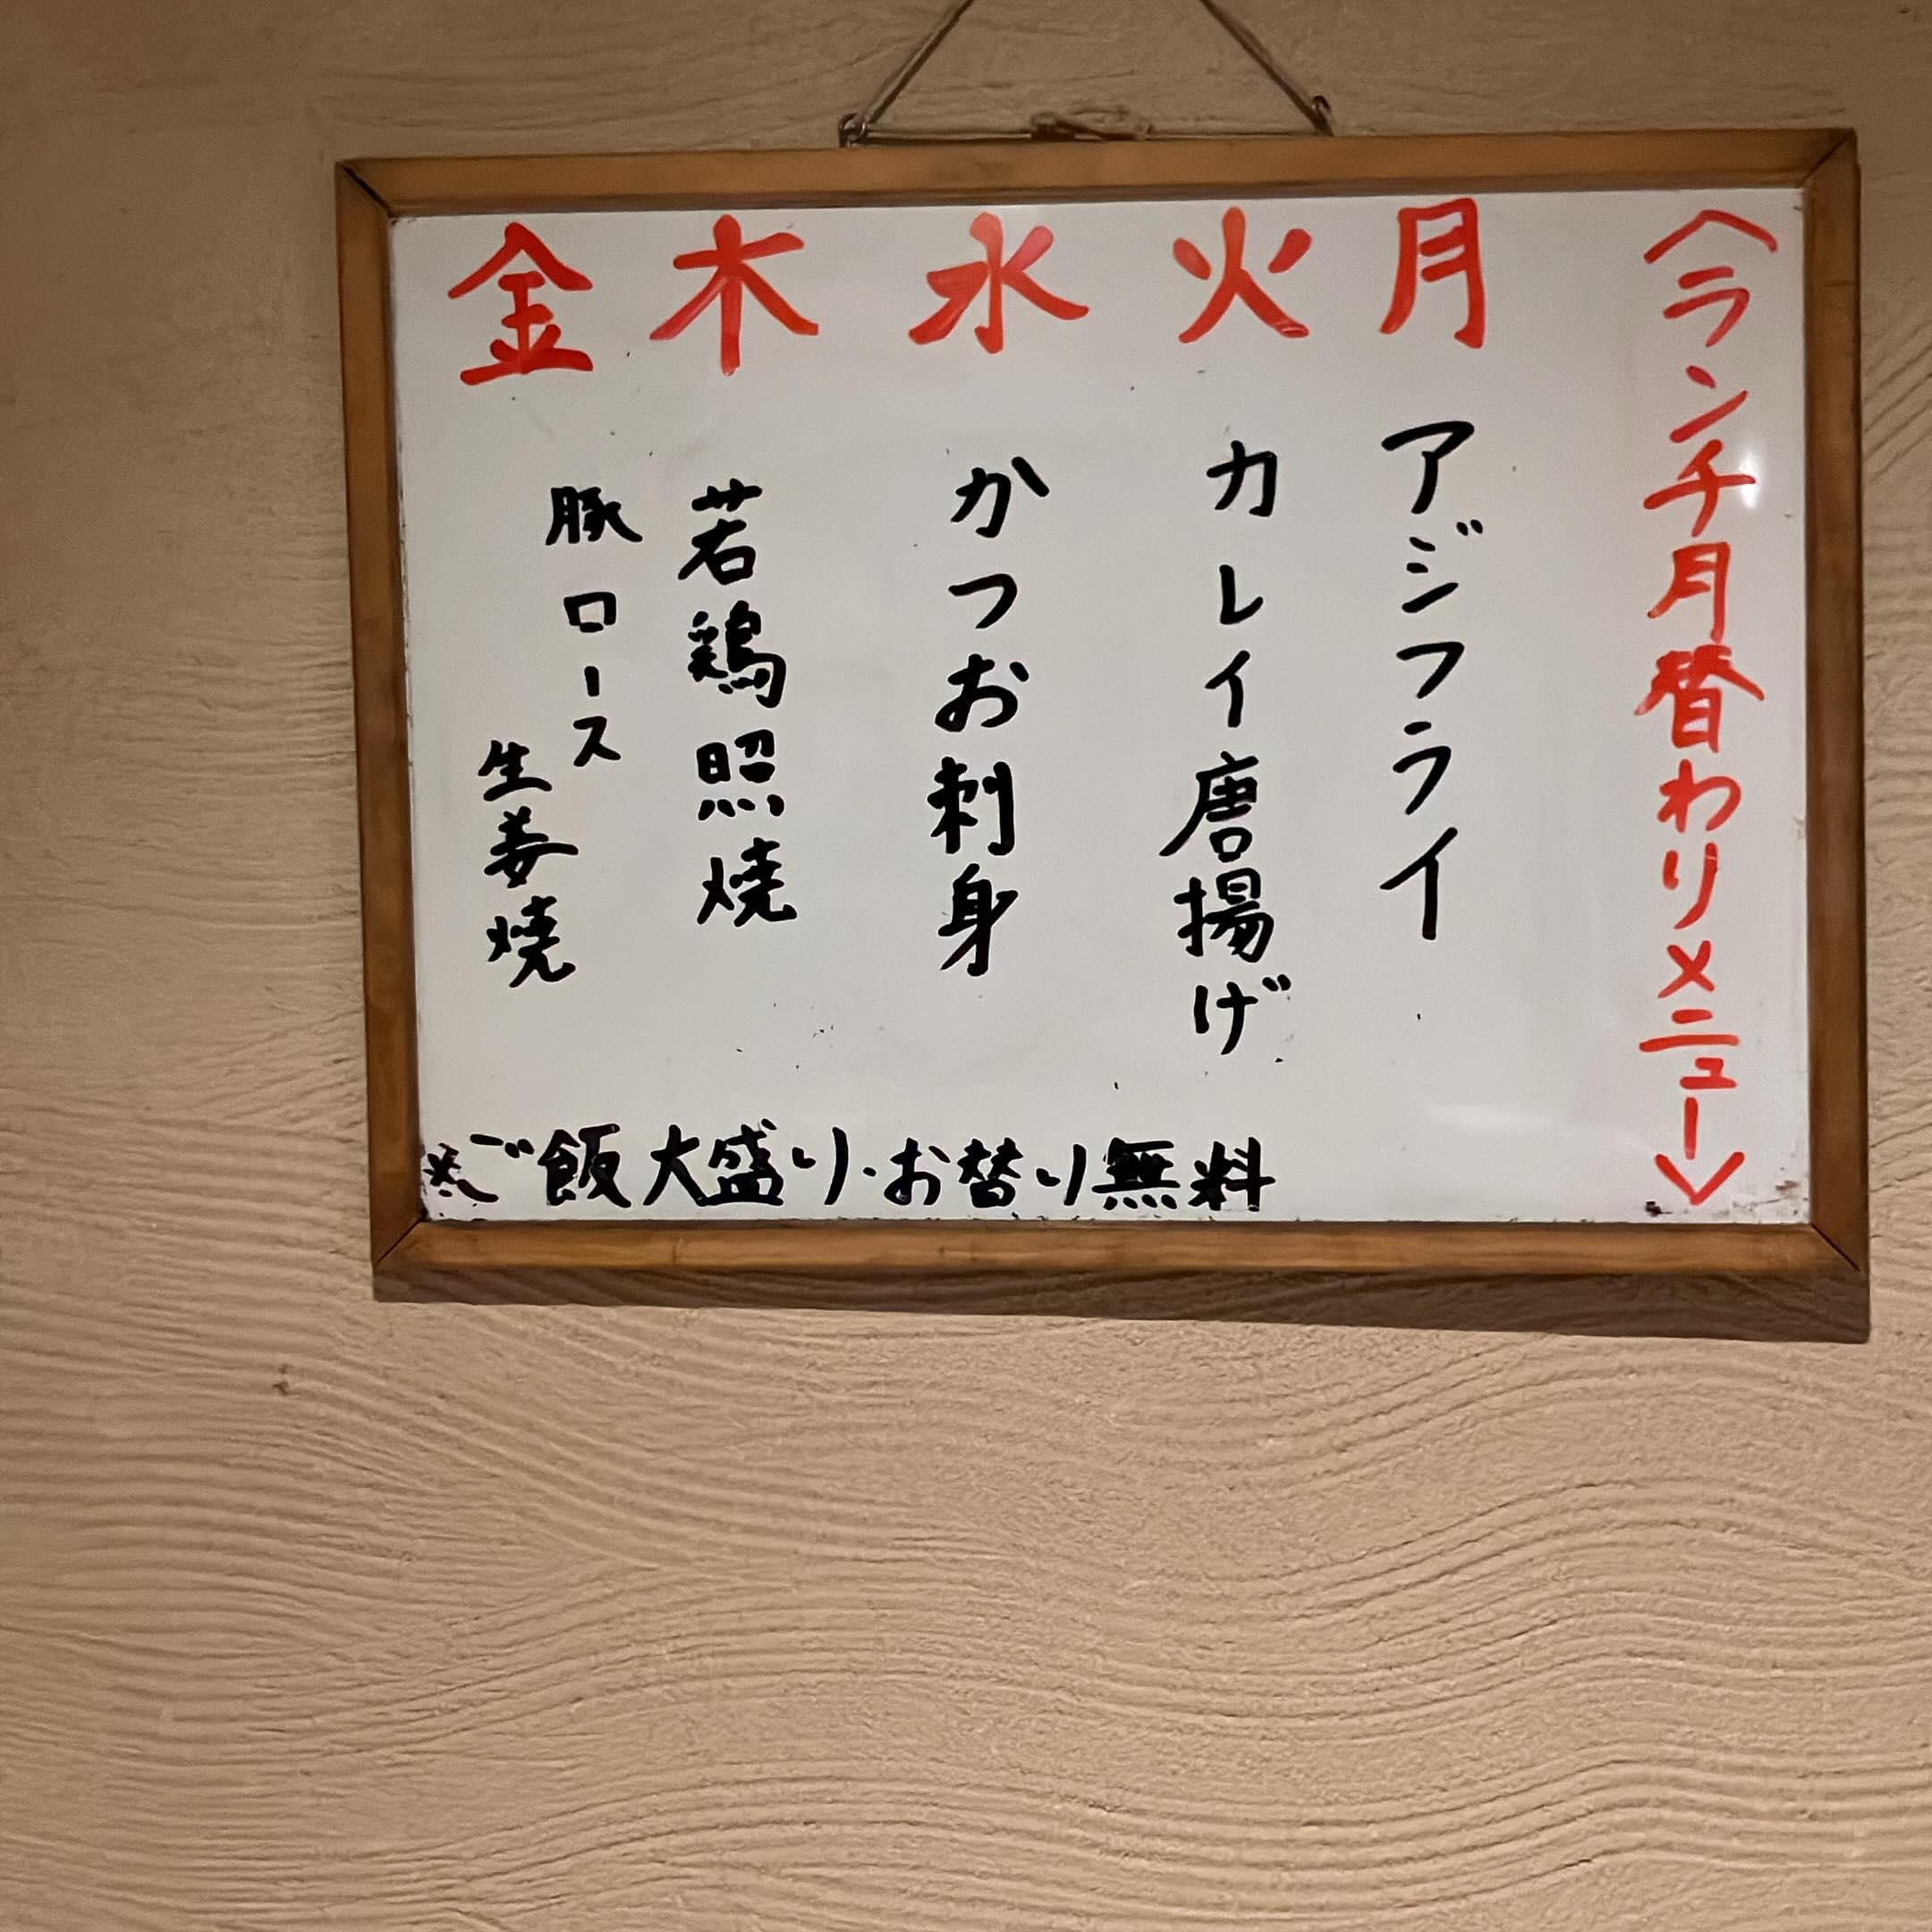 〈ランチ月替わりメニュー〉
月
アジフライ
火
カレイ唐揚げ
水
かつお刺身
木
若鶏照焼
金
豚ロース
生姜焼
※ご飯大盛り・お替り無料